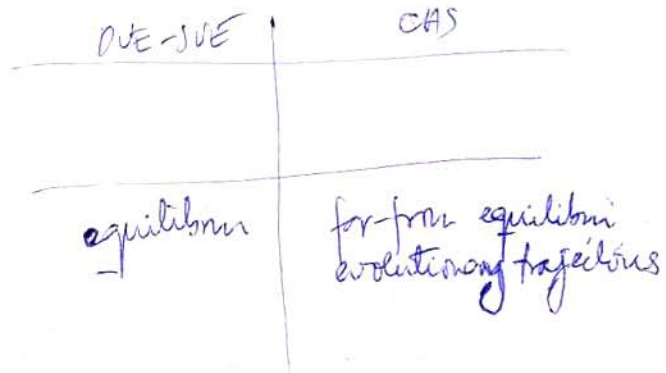 CAS
equilibrium
far-from equilibrium
evolutionary trajectories